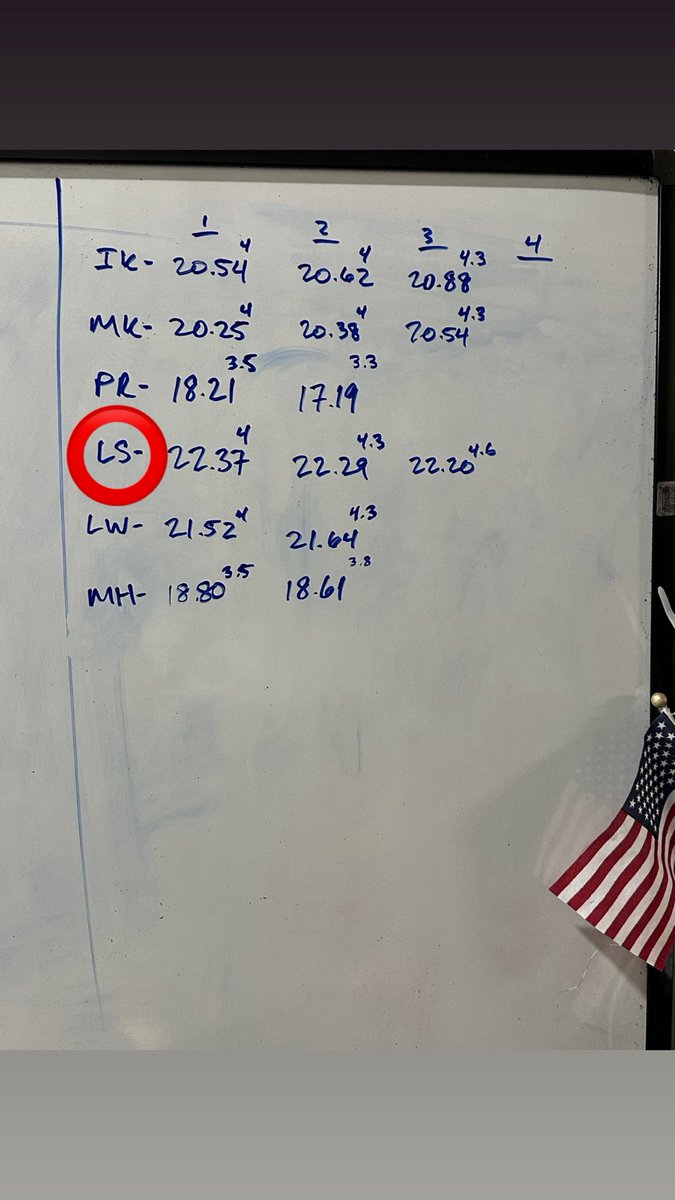 1 2 3 4
IK- 20.54 4 20.62 4 20.88 4.3
MK- 20.25 4 20.38 4 20.54 4.3
PR- 18.21 3.5 17.19 3.3
LS- 22.37 4 22.29 4.3 22.20 4.6
LW- 21.52 4 21.64 4.3
MH- 18.80 3.5 18.61 3.8